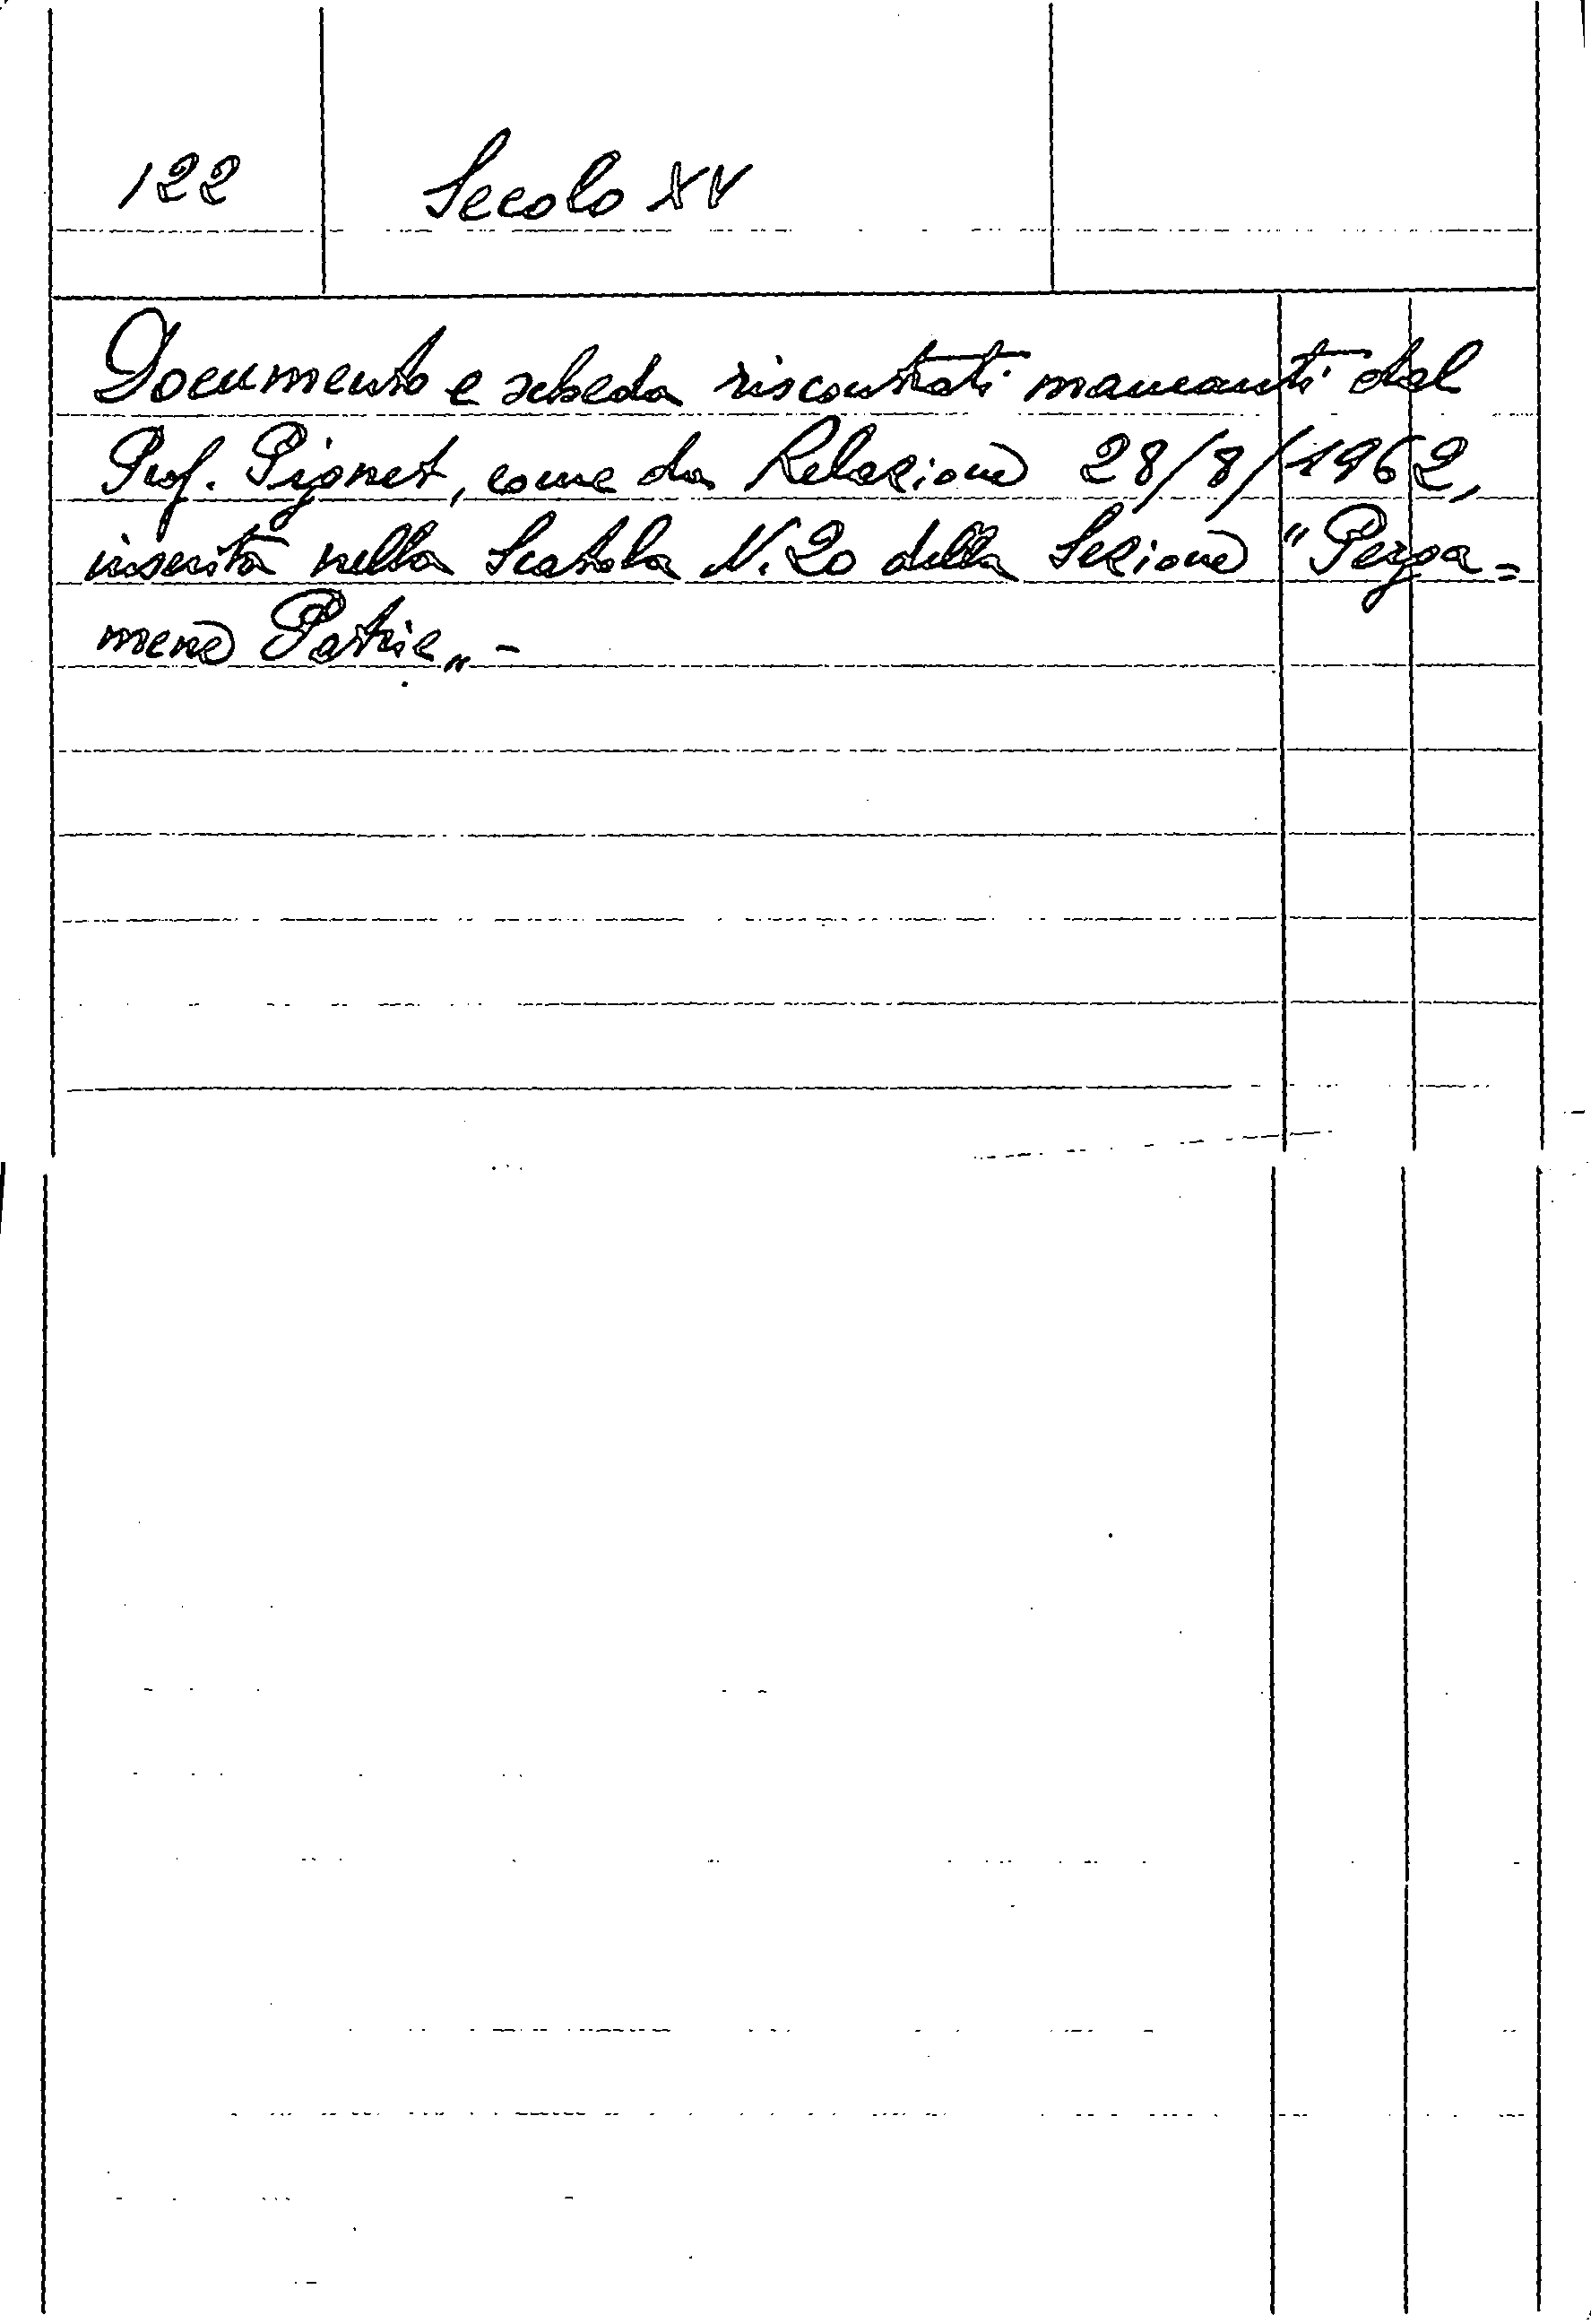 122 Secolo XV
Documento e scheda riscontrati mancanti dal
Prof. Pignet, come da Relazione 28/8/1962,
inserita nella Scatola N. 20 della Sezione "Perga=
mene Patrie„ -